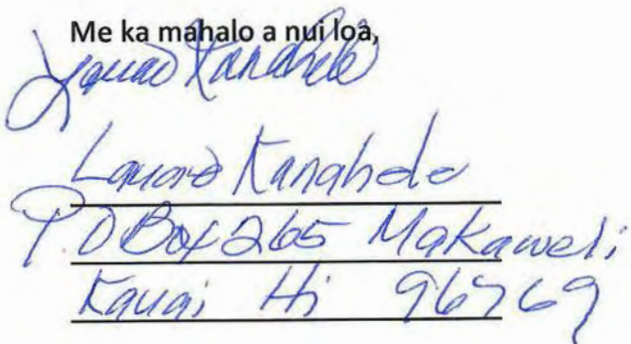 Me ka mahalo a nui loa,
Kanahele
Kanahele
P.O Box 265 Makaweli
Kauai Hi 96769